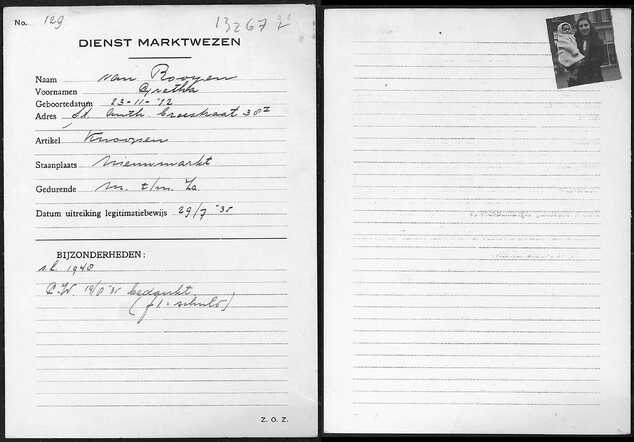 No. 129
13267
DIENST MARKTWEZEN
Naam van Rooyen
Voornamen Gretha
Geboortedatum 23-11-'12
Adres St. Anth. Breestraat 30 I
Artikel Knoopen
Staanplaats Nieuwmarkt
Gedurende M. t/m. Za.
Datum uitreiking legitimatiebewijs 29/7 '35
BIJZONDERHEDEN:
1940
bedankt
Z. O. Z.